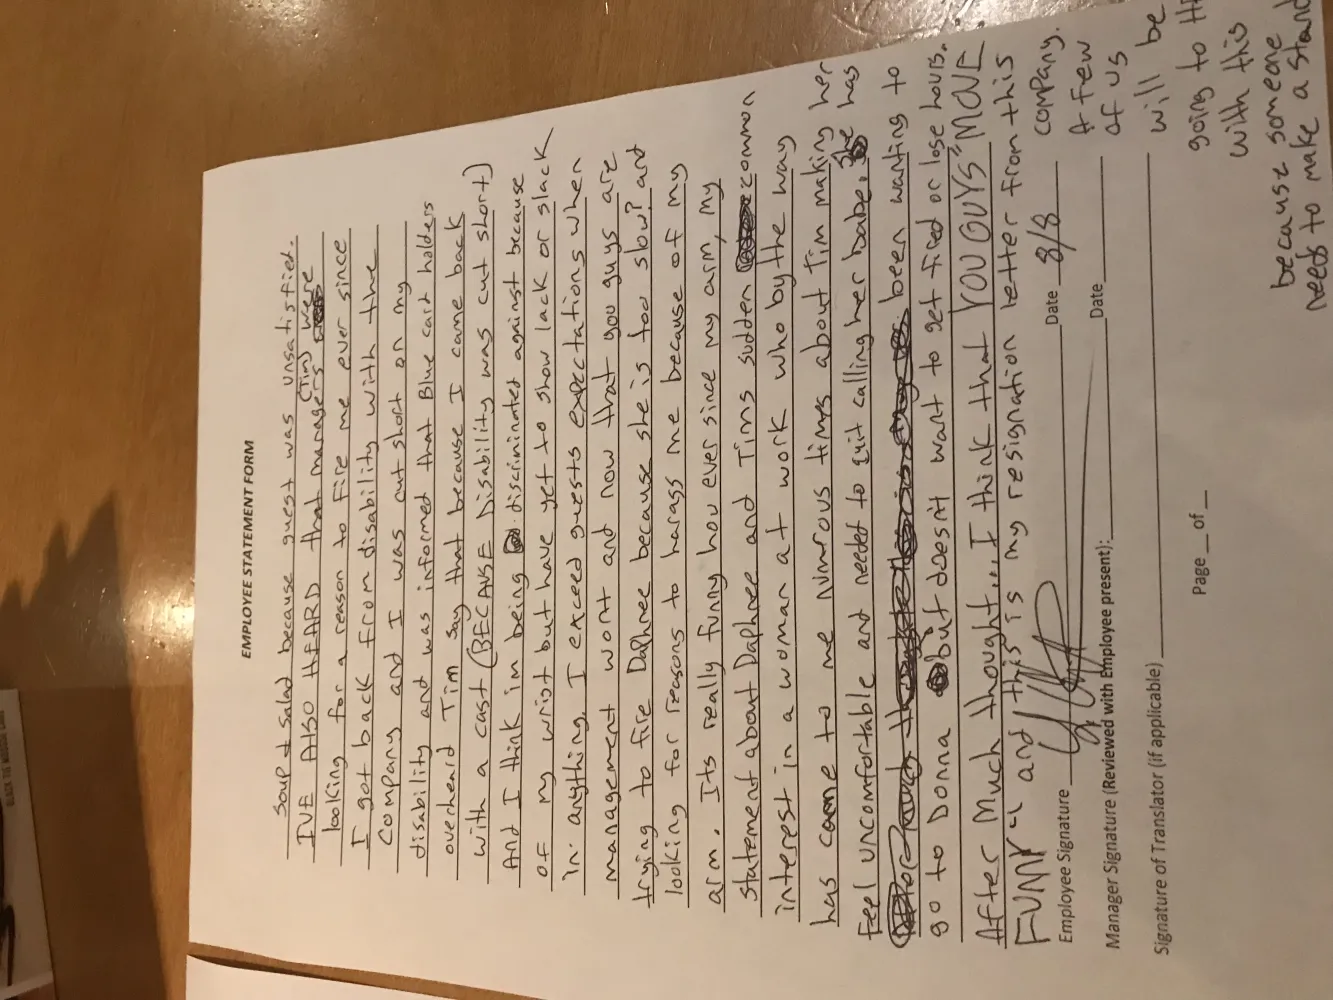 EMPLOYEE STATEMENT FORM
Soup & Salad because guest was unsatisfied.
IVE ALSO HEARD that managers (Tim) were
looking for a reason to fire me ever since
I got back from disability with the
company and I was cut short on my
disability and was informed that Blue card holders
overheard Tim say that because I came back
with a cast (BECAUSE Disability was cut short)
And I think im being discriminated against because
of my wrist but have yet to show lack or slack
in anything. I exceed guests expectations when
management wont and now that you guys are
trying to fire Daphnee because she is too slow? and
looking for reasons to harass me because of my
arm. Its really funny how ever since my arm, my
statement about Daphnee and Tims sudden common
interest in a woman at work who by the way
has came to me numrous times about Tim making her
feel uncomfortable and needed to quit calling her babe, she has
been wanting to
go to Donna but doesnt want to get fired or lose hours.
After Much thought... I think that YOU GUYS "MOVE
FUNNY" and this is my resignation letter from this
company.
A few
of us
will be
going to
with this
because someone
needs to make a stand
Employee Signature Date 8/8
Manager Signature (Reviewed with Employee present): Date
Signature of Translator (if applicable)
Page of